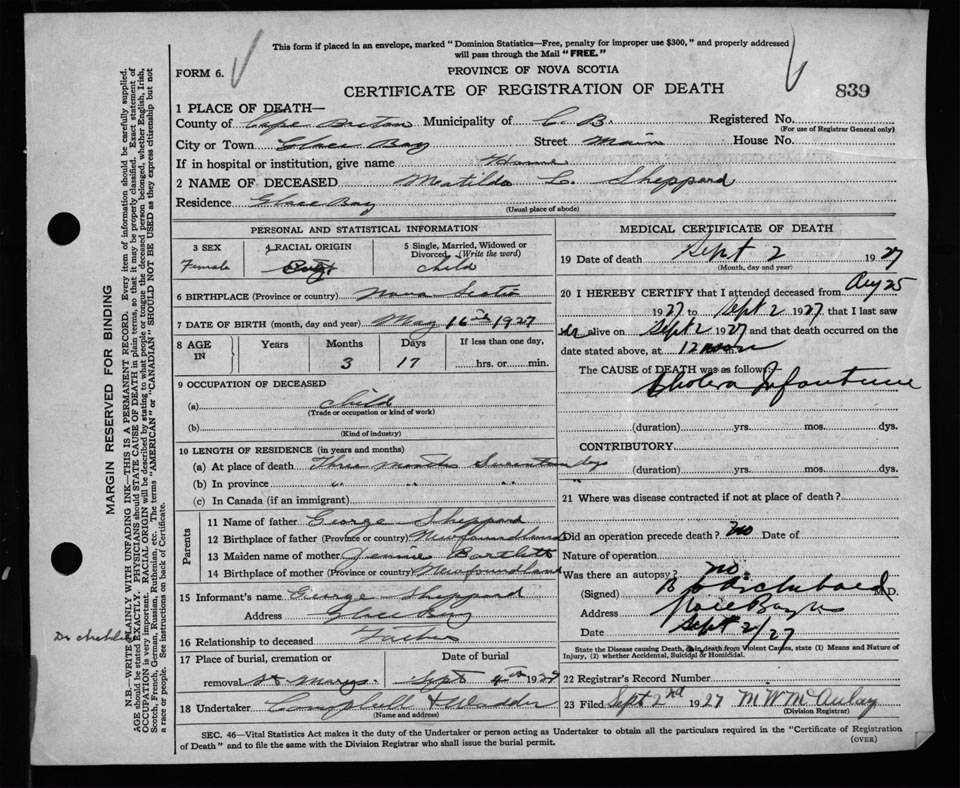 This form if placed in an envelope, marked "Dominion Statistics—Free, penalty for improper use $300," and properly addressed
will pass through the Mail "FREE."
FORM 6.
PROVINCE OF NOVA SCOTIA
CERTIFICATE OF REGISTRATION OF DEATH
839
1 PLACE OF DEATH—
County of Cape Breton Municipality of C. B. Registered No.
(For use of Registrar General only)
City or Town Glace Bay Street Main House No.
If in hospital or institution, give name Home
2 NAME OF DECEASED Matilda L. Sheppard
Residence Glace Bay
(Usual place of abode)
PERSONAL AND STATISTICAL INFORMATION
3 SEX
Female
4 RACIAL ORIGIN
5 Single, Married, Widowed or Divorced. (Write the word)
Child
6 BIRTHPLACE (Province or country) Nova Scotia
7 DATE OF BIRTH (month, day and year) May 16th 1927
8 AGE IN
Years Months Days If less than one day,
3 17 hrs. or min.
9 OCCUPATION OF DECEASED
(a) Child
(Trade or occupation or kind of work)
(b)
(Kind of industry)
10 LENGTH OF RESIDENCE (in years and months)
(a) At place of death Three months Seventeen days
(b) In province " " "
(c) In Canada (if an immigrant)
Parents
11 Name of father George Sheppard
12 Birthplace of father (Province or country) Newfoundland
13 Maiden name of mother Jennie Bartlett
14 Birthplace of mother (Province or country) Newfoundland
15 Informant's name George Sheppard
Address Glace Bay
16 Relationship to deceased Father
17 Place of burial, cremation or Date of burial
removal St Marys. Sept 4th 1927
18 Undertaker Campbell &
(Name and address)
MEDICAL CERTIFICATE OF DEATH
19 Date of death Sept 2 1927
(Month, day and year)
20 I HEREBY CERTIFY that I attended deceased from Aug 25
1927 to Sept 2 1927 that I last saw
her alive on Sept 2 1927 and that death occurred on the
date stated above, at 12 noon
The CAUSE of DEATH was as follows:
Cholera Infantum
(duration) yrs. mos. dys.
CONTRIBUTORY
(duration) yrs. mos. dys.
21 Where was disease contracted if not at place of death?
Did an operation precede death? no Date of
Nature of operation
Was there an autopsy? no.
(Signed) Archibald M.D.
Address Glace Bay
Date Sept 2/27
State the Disease causing Death, or in death from Violent Causes, state (1) Means and Nature of
Injury, (2) whether Accidental, Suicidal or Homicidal.
22 Registrar's Record Number
23 Filed Sept 2nd 1927 M W McAulay
(Division Registrar)
SEC. 46—Vital Statistics Act makes it the duty of the Undertaker or person acting as Undertaker to obtain all the particulars required in the "Certificate of Registration
of Death" and to file the same with the Division Registrar who shall issue the burial permit.
(OVER)
MARGIN RESERVED FOR BINDING
N.B.—WRITE PLAINLY WITH UNFADING INK—THIS IS A PERMANENT RECORD. Every item of information should be carefully supplied.
AGE should be stated EXACTLY. PHYSICIANS should STATE CAUSE OF DEATH in plain terms, so that it may be properly classified. Exact statement of
OCCUPATION is very important. RACIAL ORIGIN will be described by stating to what people or tongue the deceased person belonged, whether English, Irish,
Scotch, French, German, Russian, Ruthenian, etc. The terms "AMERICAN" or "CANADIAN" SHOULD NOT BE USED as they express citizenship but not
a race or people. See instructions on back of Certificate.